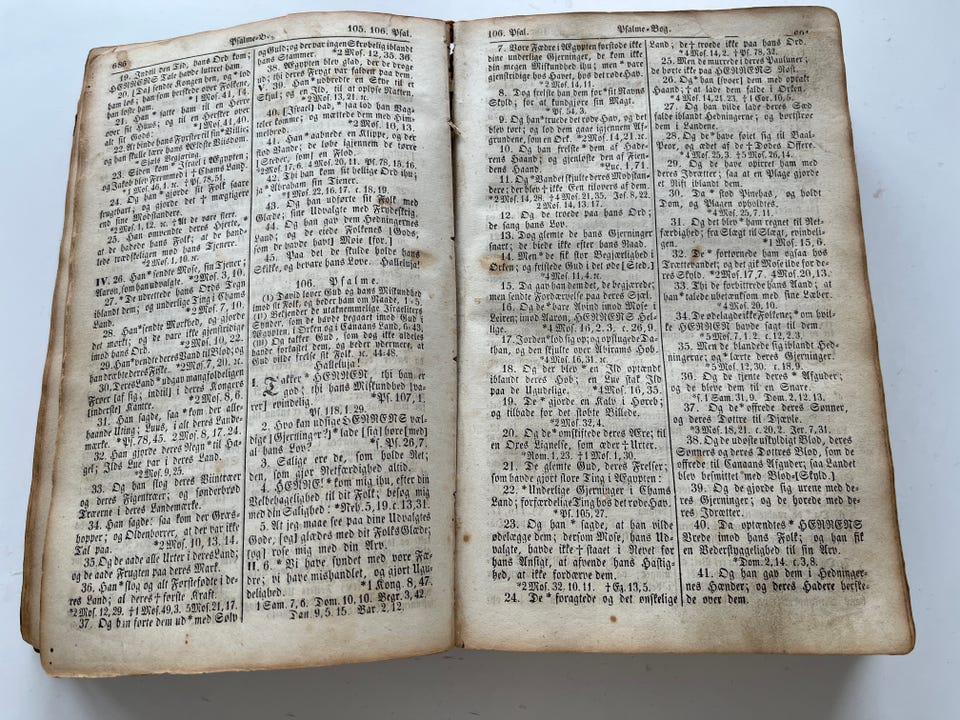 686
Psalme-B
105. 106. Psal.
19. Indtil den Tid, hans Ord kom;
HERRENS Tale havde lutret ham.
20. [Da] sendte Kongen hen, og *lod
ham løs; han som herskede over Folkene,
han løste ham. *1 Mos. 41, 14.
21. Han *satte ham til en Herre
over sit Huus, og til en Hersker over
alt sit Gods: *1 Mos. 41, 40.
22. At binde hans Fyrster til sin *Villie;
og han skulle lære hans Ældste Viisdom.
*Sjæls Begjering.
23. Siden kom *Israel i Ægypten;
og Jakob blev Fremmed i †Chams Land.
*1 Mos. 46, 1. ꝛc. †Ps. 78, 51.
24. Og han *gjorde sit Folk saare
frugtbart, og gjorde det † mægtigere
end sine Modstandere.
*2 Mos. 1, 12. ꝛc. †At de vare flere.
25. Han omvendte deres Hjerte,
at de hadede hans Folk; at de hand-
lede trædskeligen mod hans Tjenere.
*2 Mos. 1, 10. ꝛc.
IV. 26. Han *sendte Mose, sin Tjener;
Aaron, som han udvalgte. *2 Mos. 3, 10.
27. *De udrettede hans Ords Tegn
iblandt dem; og underlige Ting i Chams
Land. *2 Mos. 7, 10.
28. Han *sendte Mørkhed, og gjorde
det mørkt; og de vare ikke gjenstridige
imod hans Ord. *2 Mos. 10, 22.
29. Han *vendte deres Vand til Blod; og
han dræbte deres Fiske. *2 Mos. 7, 20. ꝛc.
30. Deres Land *udgav mangfoldeligen
Frøer [af sig; indtil] i deres Kongers
[inderste] Kamre. *2 Mos. 8, 6.
31. Han sagde, *saa kom der alle-
haande Utøi; Luus, i alt deres Lande-
mærke. *Ps. 78, 45. 2 Mos. 8, 17. 24.
32. Han gjorde deres Regn *til Ha-
gel; Ilds Lue var i deres Land.
*2 Mos. 9, 25.
33. Og han slog deres Viintræer
og deres Figentræer; og sønderbrød
Træerne i deres Landemærke.
34. Han *sagde: saa kom der Græs-
hopper; og Oldenborrer, at der var ikke
Tal paa. *2 Mos. 10, 13. 14.
35. Og de aade alle Urter i deres Land;
og de aade Frugten paa deres Mark.
36. Han *slog og alt Førstefødte i de-
res Land; al deres † første Kraft.
*2 Mos. 12, 29. †1 Mos. 49, 3. 5 Mos. 21, 17.
37. Og han førte dem ud *med Sølv
og Guld; og der var ingen Skrøbelig iblandt
hans Stammer. *2 Mos. 12, 35. 36.
38. Ægypten blev glad, der de droge
ud; thi deres Frygt var falden paa dem.
V. 39. Han *udbredte en Sky til et
Skjul; og en Ild, til at oplyse Natten.
*2 Mos. 13, 21. ꝛc.
40. [Israel] bad, *saa lod han Vag-
teler komme; og mættede dem med Him-
melbrød. *2 Mos. 16, 13.
41. Han *aabnede en Klippe, og der
flød Vande; de løbe igjennem de tørre
[Steder, som] en Flod.
*2 Mos. 17, 6. 4 Mos. 20, 11. Ps. 78, 15. 16.
42. Thi han kom sit hellige Ord ihu;
ja *Abraham sin Tjener.
*1 Mos. 22, 16. 17. c. 18, 19.
43. Og han udførte sit Folk med
Glæde; sine Udvalgte med Frydeskrig.
44. Og han gav dem Hedningernes
Land; og de eiede Folkenes [Gods,
som de havde havt] Møie [for.]
45. Paa det de skulle holde hans
Skikke, og bevare hans Love. Halleluja!
106. Psalme.
(I) David lover Gud og hans Miskundhed
imod sit Folk; og beder ham om Naade, 1-5.
(II) Bekjender de utaknemmelige Israeliters
Synder, som de havde begaaet imod Gud i
Ægypten, i Ørken og i Canaans Land, 6-43.
(III) Og takker Gud, som dog ikke aldeles
havde forkastet dem, og bederommere, at
Gud vil frelse sit Folk. ꝛc. 44-48.
Halleluja!
I. Takker *HERREN, thi han er
god; thi hans Miskundhed [va-
rer] evindelig. *Ps. 107, 1.
Ps. 118, 1. 29.
2. Hvo kan udsige HERRENS vældi-
ge [Gjerninger?] *lade [sig] høre [med]
al hans Lov? *s. Ps. 26, 7.
3. Salige ere de, som holde Ret;
den, som gjør Retfærdighed altid.
4. HERRE! *kom mig ihu, efter din
Velbehagelighed til dit Folk; besøg mig
med din Salighed: *Neh. 5, 19. c. 13, 31.
5. At jeg maae see paa dine Udvalgtes
Gode, [og] glædes med dit Folks Glæde;
[og] rose mig med din Arv.
II. 6. *Vi have syndet med vore Fæ-
dre; vi have mishandlet, og gjort Ugu-
delighed. *1 Kong. 8, 47.
1 Sam. 7, 6. Dom. 10, 10. Begr. 3, 42.
Dan. 9, 5. 15. Bar. 2, 12.
106. Psal.
Psalme-Bog.
7. Vore Fædre i Ægypten forstode ikke
dine underlige Gjerninger, de kom ikke
din megen Miskundhed ihu; men *vare
gjenstridige hos Havet, hos det røde Hav.
*2 Mos. 14, 11.
8. Dog frelste han dem for *sit Navns
Skyld, for at kundgjøre sin Magt.
*Ps. 54, 3.
9. Og han *truede det røde Hav, og det
blev tørt; og lod dem gaae igjennem Af-
grundene, som en Ørk. *2 Mos. 14, 21. ꝛc.
10. Og han frelste *dem af Ha-
derens Haand; og gjenløste dem af Fien-
dens Haand. *Luc. 1, 71.
11. Og *Vandet skjulte deres Modstan-
dere; der blev †ikke Een tilovers af dem.
*2 Mos. 14, 28. †4 Mos. 21, 35. Jos. 8, 22.
2 Mos. 14, 13. 17.
12. Og de troede paa hans Ord;
de sang hans Lov.
13. Dog glemte de hans Gjerninger
snart; de biede ikke efter hans Raad.
14. Men *de fik stor Begjærlighed i
Ørken; og fristede Gud i det øde [Sted.]
*4 Mos. 11, 4. ꝛc.
15. Da gav han dem det, de begjærede;
men sendte Fordærvelse paa deres Sjæl.
16. Og de *bare Avind imod Mose i
Leiren; imod Aaron, HERRENS Hel-
lige. *4 Mos. 16, 2. 3. c. 26, 9.
17. Jorden *lod sig op; og opslugede Da-
than, og den skjulte over Abirams Hob.
*4 Mos. 16, 31. ꝛc.
18. Og der blev *en Ild optændt
iblandt deres Hob; en Lue stak Ild
paa de Ugudelige. *4 Mos. 16, 35.
19. De *gjorde en Kalv i Horeb;
og tilbade for det støbte Billede.
*2 Mos. 32, 4.
20. Og de *omskiftede deres Ære; til
en Oxes Lignelse, som æder †Urter.
*Rom. 1, 23. †1 Mos. 1, 30.
21. De glemte Gud, deres Frelser;
som havde gjort store Ting i Ægypten:
22. *Underlige Gjerninger i Chams
Land; forfærdelige Ting hos det røde Hav.
*Ps. 105, 27.
23. Og han *sagde, at han vilde
ødelægge dem; dersom Mose, hans Ud-
valgte, havde ikke †staaet i Revet for
hans Ansigt, at afvende hans Hastig-
hed, at ikke fordærve dem.
*2 Mos. 32, 10. 11. †Ez. 13, 5.
24. De *foragtede og det ønskelige
Land; de †troede ikke paa hans Ord.
*4 Mos. 14, 2. †Ps. 78, 32.
25. Men de murrede i deres Pauluner;
de hørte ikke paa HERRENS Røst.
26. Og *han [svor] dem med opløftet
Haand; †at lade dem falde i Ørken.
*4 Mos. 14, 21. 23. †1 Cor. 10, 5.
27. Og han vilde lade deres Sæd
falde iblandt Hedningerne; og bortstrøe
dem i Landene.
28. Og de *have føiet sig til Baal-
Peor, og ædet af de †Dødes Offere.
*4 Mos. 25, 3. †5 Mos. 26, 14.
29. Og de have opirret ham med
deres Idrætter; saa at en Plage gjorde
et Rift iblandt dem.
30. Da *stod Pinehas, og holdt
Dom, og Plagen opholdtes.
*4 Mos. 25, 7. 11.
31. Og det blev *ham regnet til Ret-
færdighed; fra Slægt til Slægt, evindeli-
gen. *1 Mos. 15, 6.
32. De *fortørnede ham ogsaa hos
Trættevandet; og det gik Mose ilde for de-
res Skyld. *2 Mos. 17, 7. 4 Mos. 20, 13.
33. Thi de forbittrede hans Aand; at
han *talede ubetænksom med sine Læber.
*4 Mos. 20, 10.
34. De ødelagde ikke Folkene; *om hvil-
ke HERREN havde sagt til dem.
*5 Mos. 7, 1. 2. c. 12, 2. 3.
35. Men de blandede sig iblandt Hed-
ningerne; og *lærte deres Gjerninger.
*5 Mos. 12, 30. c. 18, 9.
36. Og de tjente deres *Afguder;
og de bleve dem til en Snare.
*s. 1 Sam. 31, 9. Dom. 2, 12. 13.
37. Og *de offrede deres Sønner,
og deres Døttre til Djævle.
*3 Mos. 18, 21. c. 20, 2. Jer. 7, 31.
38. Og de udøste uskyldigt Blod, deres
Sønners og deres Døttres Blod, som de
offrede til Canaans Afguder; saa Landet
blev besmittet med Blod-[Skyld.]
39. Og de gjorde sig urene med de-
res Gjerninger; og de horede med de-
res Idrætter.
40. Da optændtes *HERRENS
Vrede imod hans Folk; og han fik
en Vederstyggelighed til sin Arv.
*Dom. 2, 14. c. 3, 8.
41. Og han gav dem i Hedninger-
nes Hænder; og deres Hadere herske-
de over dem.